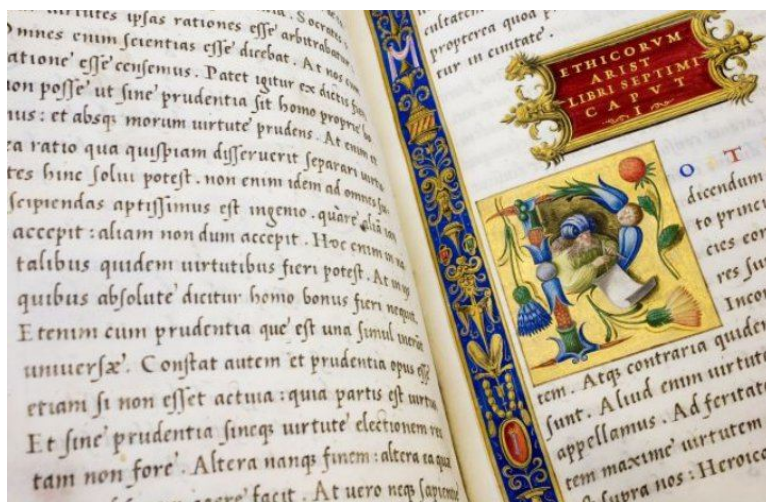 uirtutes ipsas rationes esse arbitrabatur. Socrates
Omnes enim scientias esse dicebat. At nos cum
ratione esse censemus. Patet igitur ex dictis fieri
non posse ut sine prudentia sit homo proprie bo
nus: et absq; morum uirtute prudens. At enim et
ea ratio qua quispiam disseruerit separari uirtu
tes hinc solui potest. non enim idem ad omnes su
scipiendas aptissimus est ingenio. quare aliā iam
accepit: aliam non dum accepit. Hoc enim in na
talibus quidem uirtutibus fieri potest. At in iis
quibus absolute dicitur homo bonus fieri nequit.
Etenim cum prudentia que est una simul inerunt
uniuersæ. Constat autem et prudentia opus esse
etiam si non esset actiua: quia partis est uirtus
Et sine prudentia sineq; uirtute electionem rec
tam non fore. Altera nanq; finem: altera ea quæ
facit. At uero neq; sapientiæ
M
cultatem
propterea quod
tur in ciuitate.
ETHICORVM
ARIST
LIBRI SEPTIMI
CAPVT
I
P O T
dicendum
to princi
cies
res sun
Incon
tem. Atq; contraria quidem
sunt. Aliud enim uirtute
appellamus. Ad feritate
tem maxime uirtutem
supra nos: Heroica